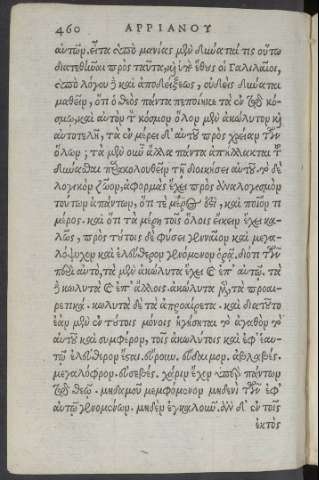 460 ΑΡΡΙΑΝΟΥ
αὐτῶν. εἶτα ὑπὸ μανίας μὲν δύναταί τις οὕτω
διατεθῆναι πρὸς ταῦτα, καὶ ὑπὸ ἔθους οἱ Γαλιλαῖοι,
ὑπὸ λόγου δὲ καὶ ἀποδείξεως, οὐδεὶς δύναται
μαθεῖν, ὅτι ὁ θεὸς πάντα πεποίηκε τὰ ἐν τῷ κό-
σμῳ, καὶ αὐτὸν τὸν κόσμον ὅλον μὲν ἀκώλυτον καὶ
αὐτοτελῆ, τὰ ἐν μέρει δ' αὐτοῦ πρὸς χρείαν τῶν
ὅλων; τὰ μὲν οὖν ἄλλα πάντα ἀπήλλακται τοῦ
δύνασθαι παρακολουθεῖν τῇ διοικήσει αὐτοῦ. τὸ δὲ
λογικὸν ζῶον, ἀφορμὰς ἔχει πρὸς ἀναλογισμὸν
τούτων ἁπάντων, ὅτι τε μέρος ἐστὶ, καὶ ποῖόν τι
μέρος. καὶ ὅτι τὰ μέρη τοῖς ὅλοις εἴκειν ἔχει κα-
λῶς, πρὸς τούτοις δὲ φύσει γενναῖον καὶ μεγα-
λόψυχον καὶ ἐλεύθερον γενόμενον ὁρᾷ, διότι τῶν
περὶ αὐτὸ, τὰ μὲν ἀκώλυτα ἔχει καὶ ἐπ' αὐτῷ. τὰ
δὲ κωλυτὰ καὶ ἐπ' ἄλλοις. ἀκώλυτα μὲν, τὰ προαι-
ρετικά. κωλυτὰ δὲ τὰ ἀπροαίρετα. καὶ διατοῦτο
ἐὰν μὲν ἐν τούτοις μόνοις ἡγήσηται τὸ ἀγαθὸν τὸ
αὑτοῦ καὶ συμφέρον, τοῖς ἀκωλύτοις καὶ ἐφ' ἑαυ-
τῷ ἐλεύθερον ἔσται. εὔρουν. εὔδαιμον. ἀβλαβὲς.
μεγαλόφρον. εὐσεβὲς. χάριν ἔχον ὑπὲρ πάντων
τῷ θεῷ. μηδαμοῦ μεμφόμενον μηδενὶ τῶν ἐφ'
αὑτῷ γενομένων. μηδὲν ἐγκαλοῦν. ἂν δ' ἐν τοῖς
ἐκτὸς